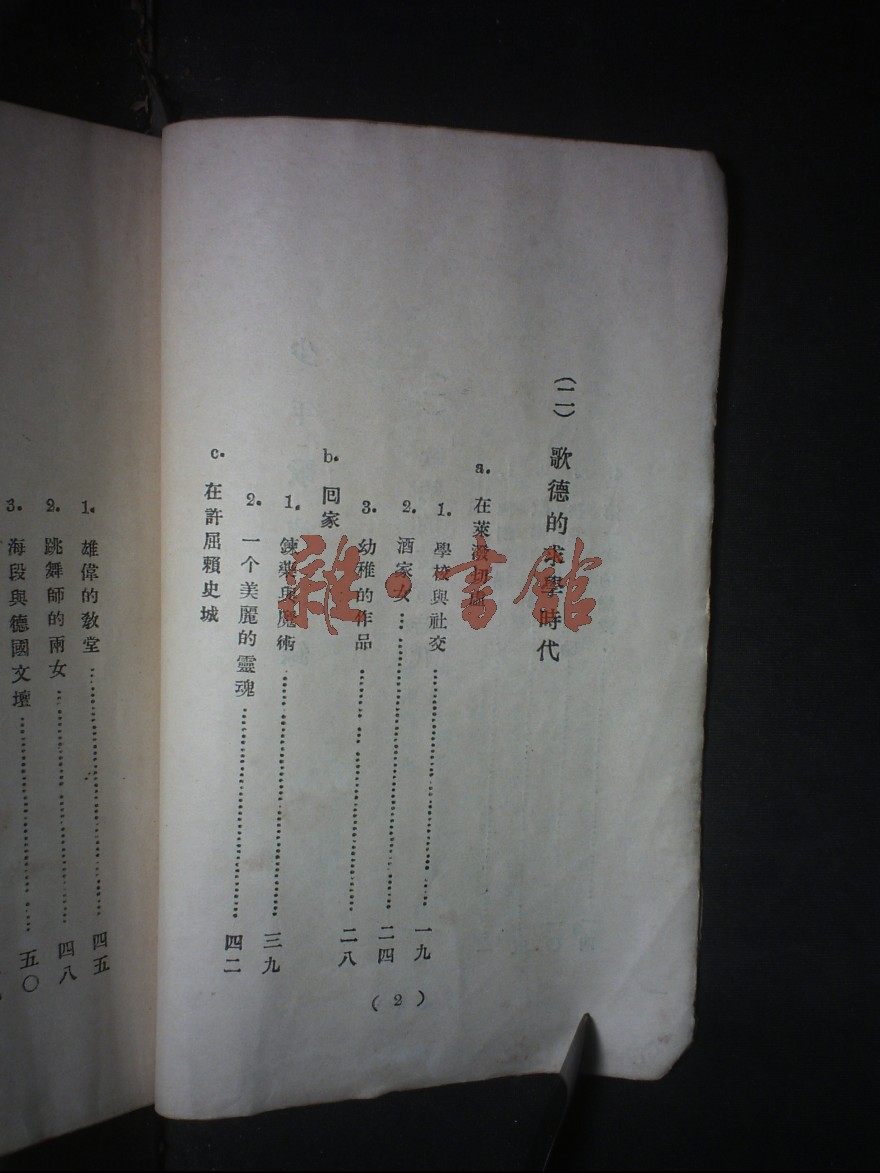 (二) 歌德的求學時代
a. 在萊
1. 學校與社交 一九
2. 酒家女 二四
3. 幼稚的作品 二八
b. 回家
1. 鍊藥與魔術 三九
2. 一个美麗的靈魂 四二
c. 在許屈賴史城
(2)
1. 雄偉的教堂 四五
2. 跳舞師的兩女 四八
3. 海段與德國文壇 五〇
雜·書館